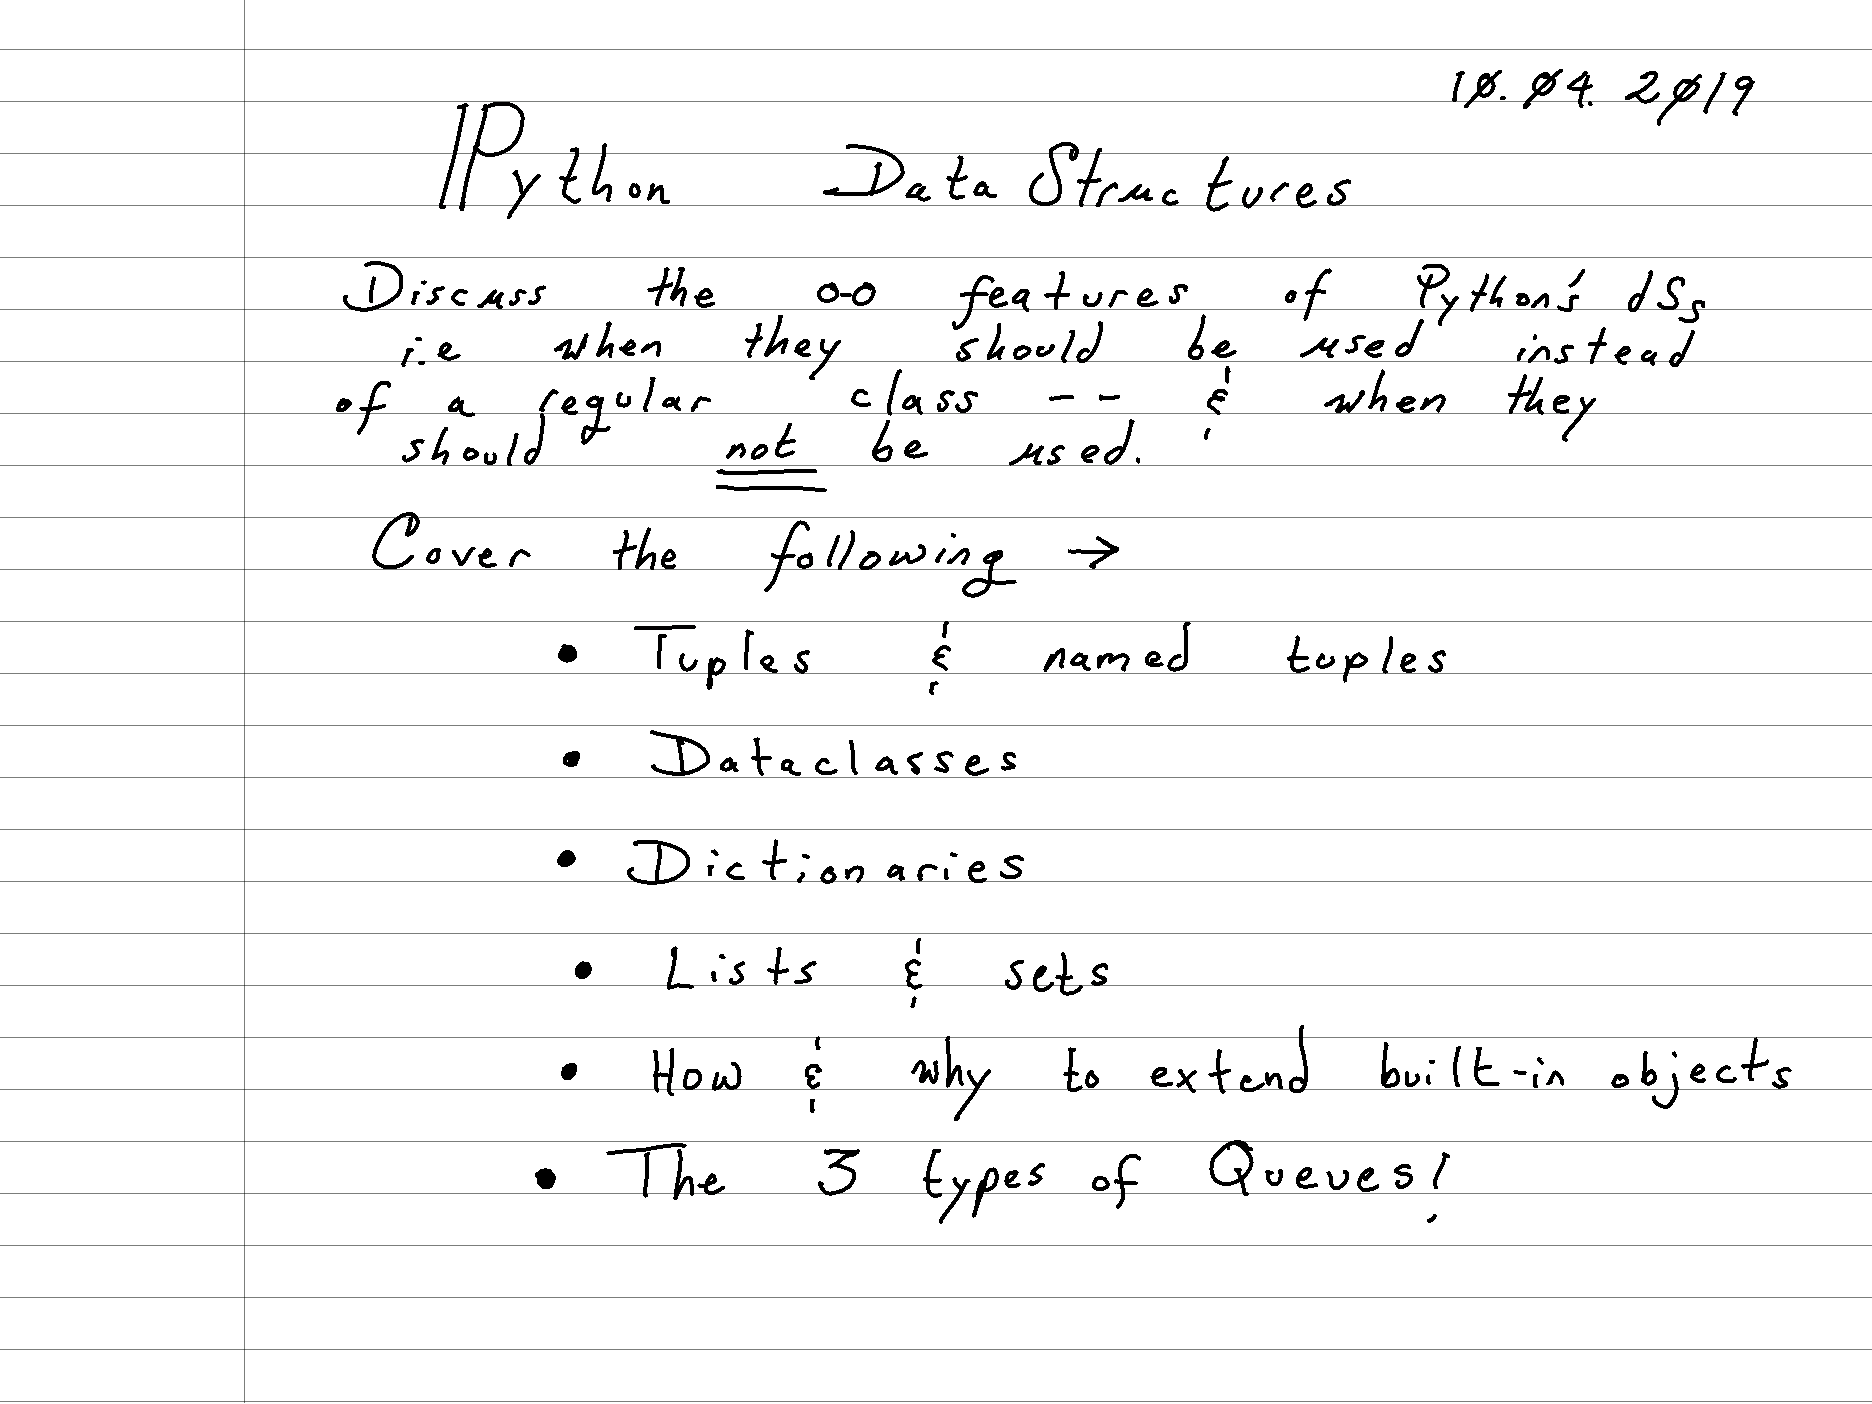 10.04.2019
Python Data Structures
Discuss the o-o features of Python's dSs
i.e when they should be used instead
of a regular class -- & when they
should not be used.
Cover the following →
• Tuples & named tuples
• Dataclasses
• Dictionaries
• Lists & sets
• How & why to extend built-in objects
• The 3 types of Queues!